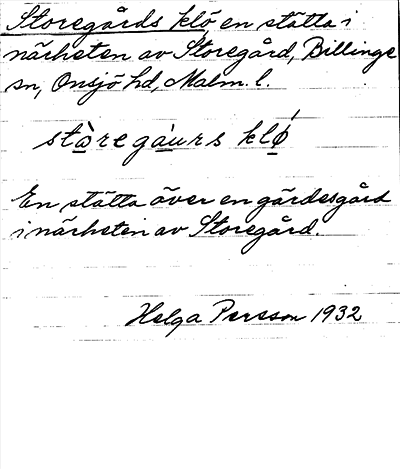 Storegårds klö en stätta i
närheten av Storegård, Billinge
sn, Onsjö hd, Malm. l.
stòregáurs klǿ
En stätta över en gärdesgård
i närheten av Storegård.
Helga Persson 1932